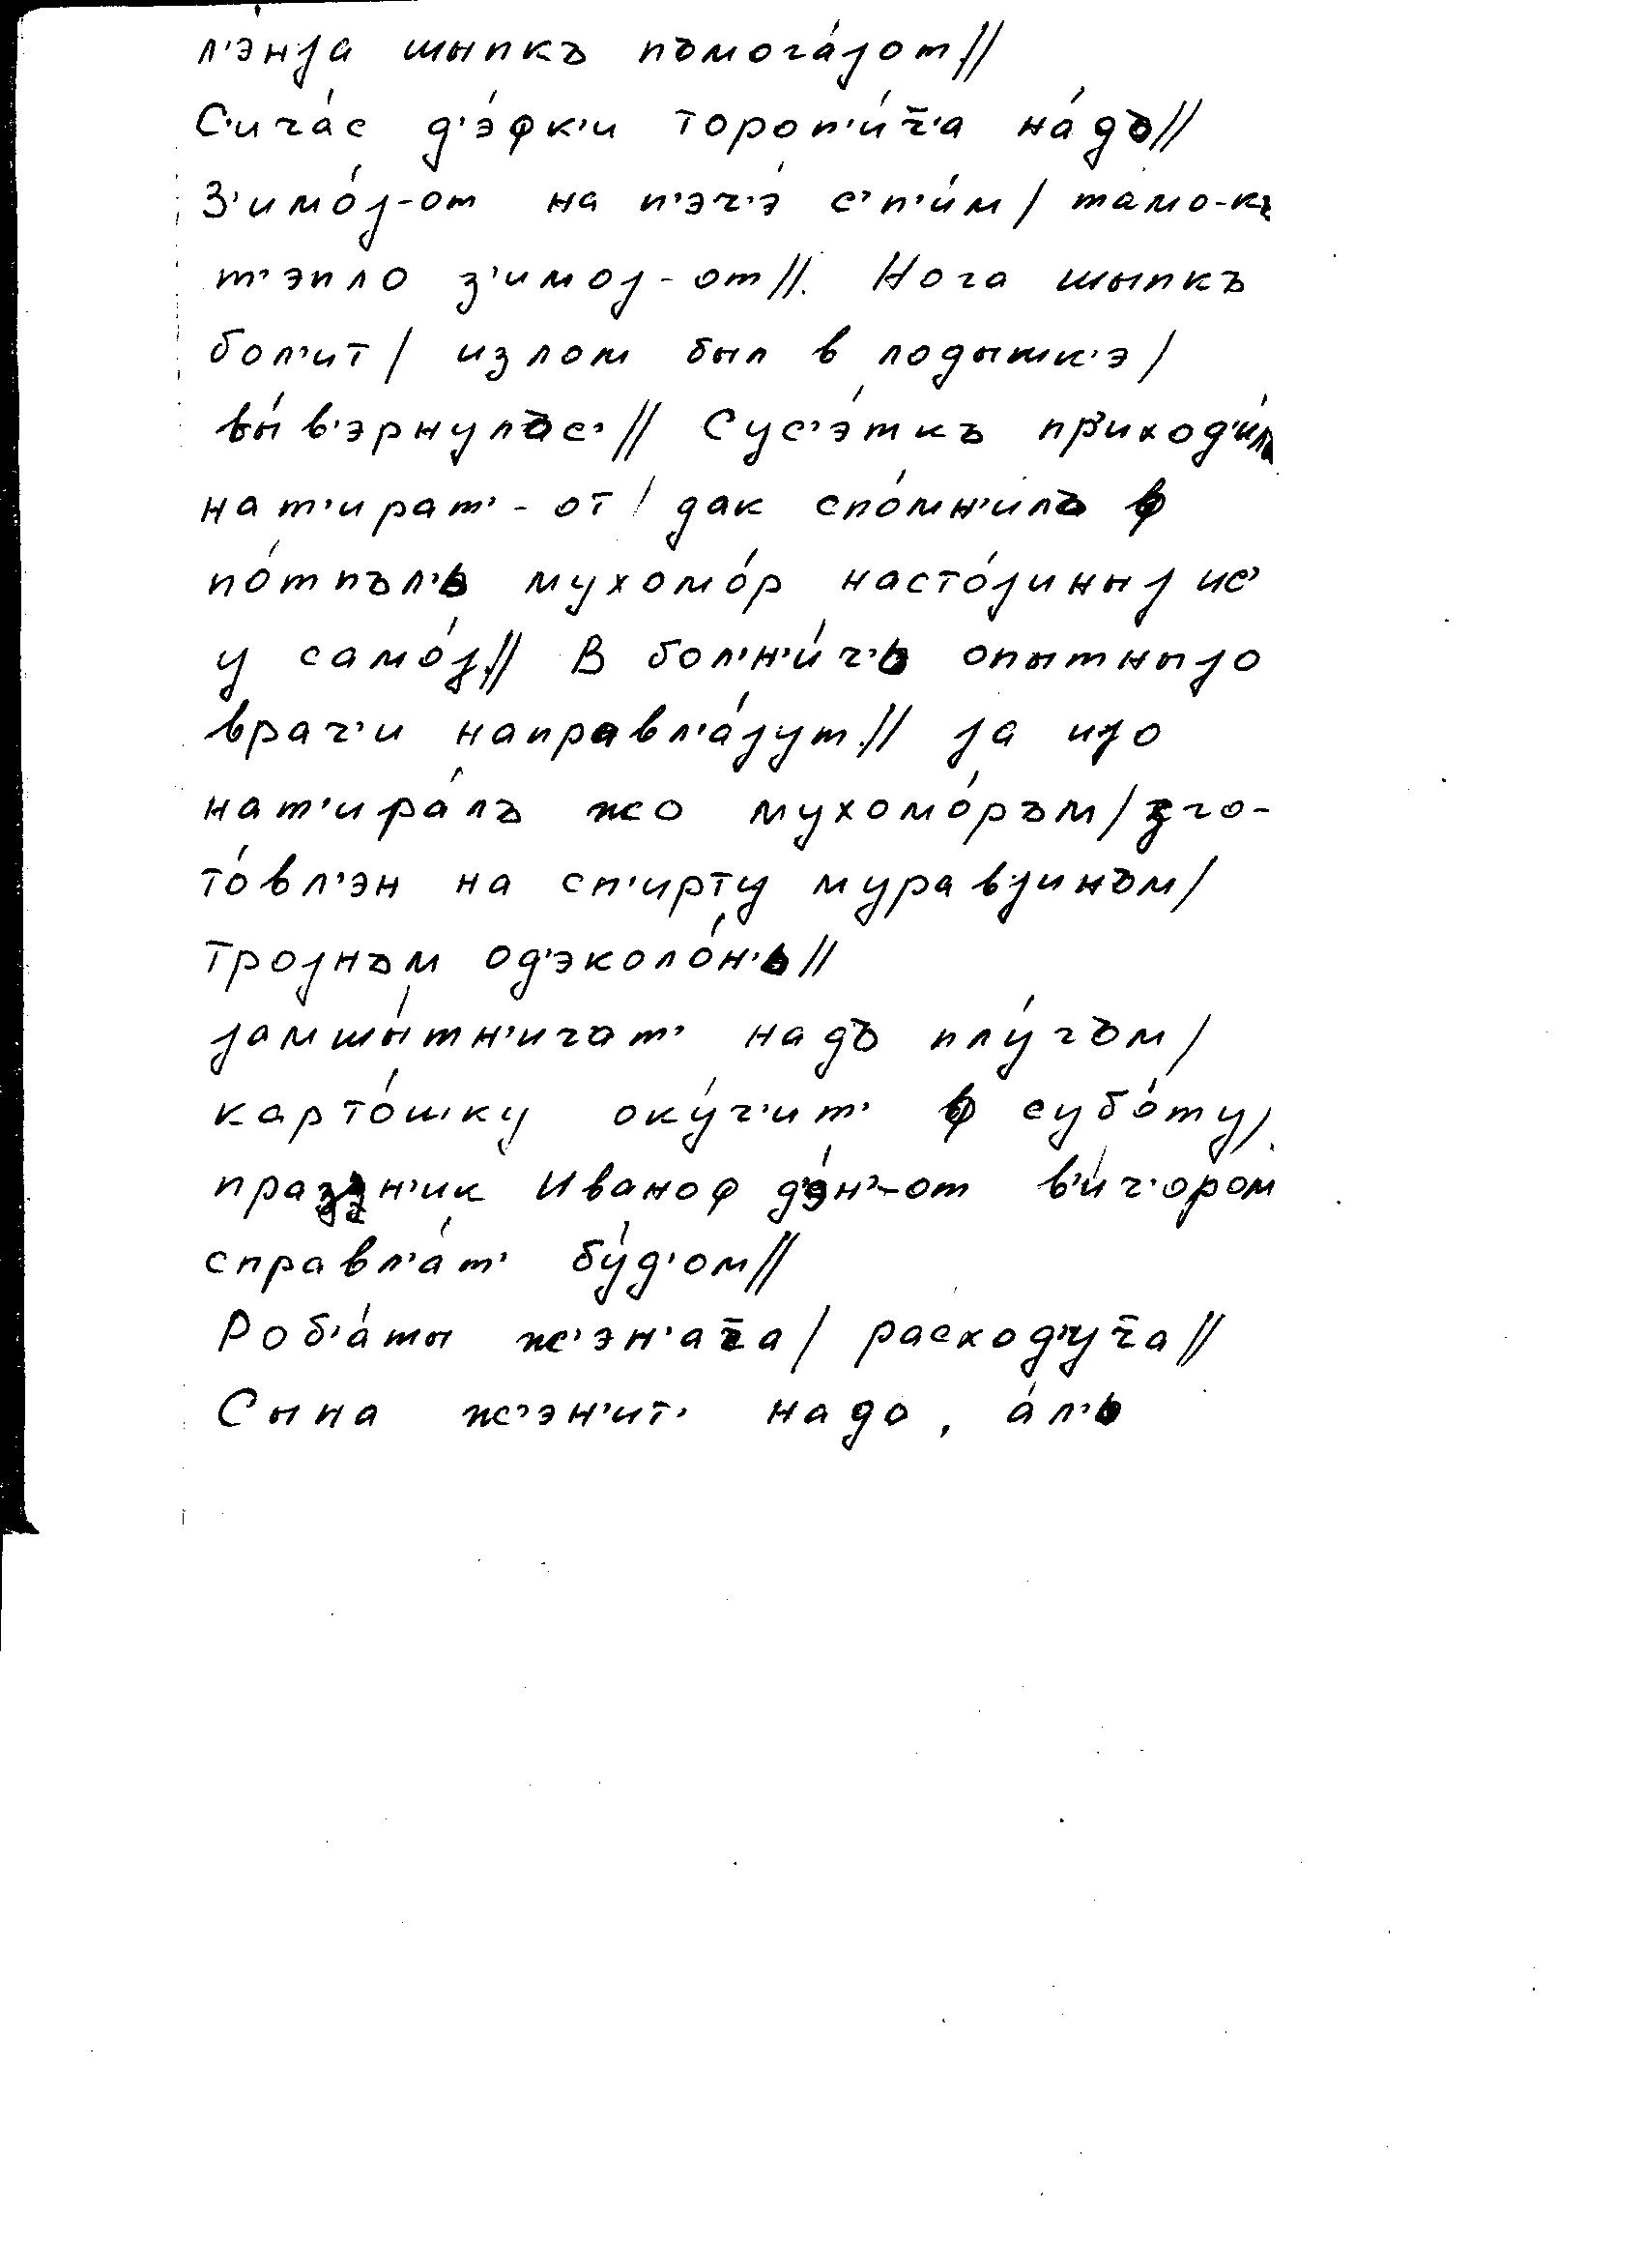 л'э́нjа шыпкъ пъмога́jот//
С'ича́с д'э́фк'и тороп'и́ч̄'а на́дъ//
З'имо́j-от на п'эч'э́ с'п'и́м/ тамо-къ
т'эпло з'имоj-от//. Нога шыпкъ
бол'ит/ излом был в лодышк'э/
вы́в'эрнулас'// Сус'э́ткъ пр'иход'и́ла
нат'ират'-от/ дак спо́мн'илъ ф
по́тпъл'ь мухомо́р насто́jиныj ис'
у само́j// В бол'н'и́ч'ь опытныjо
врач'и направл'а́jут// jа иjо
нат'ира́лъ жо мухомо́ръм/ зго-
то́вл'эн на сп'ирту муравjинъм/
Троjнъм од'эколо́н'ь//
jамшы́тн'ичат' надъ плу́гъм/
карто́шку оку́ч'ит' ф субо́ту/
празн'ик Иваноф д'э́н'-от в'и́ч'ором
справл'а́т' бу́д'ом//
Роб'а́ты ж'эн'ач̄а/ расход'уч̄а//
Сына ж'эн'ит' надо, а́л'ь